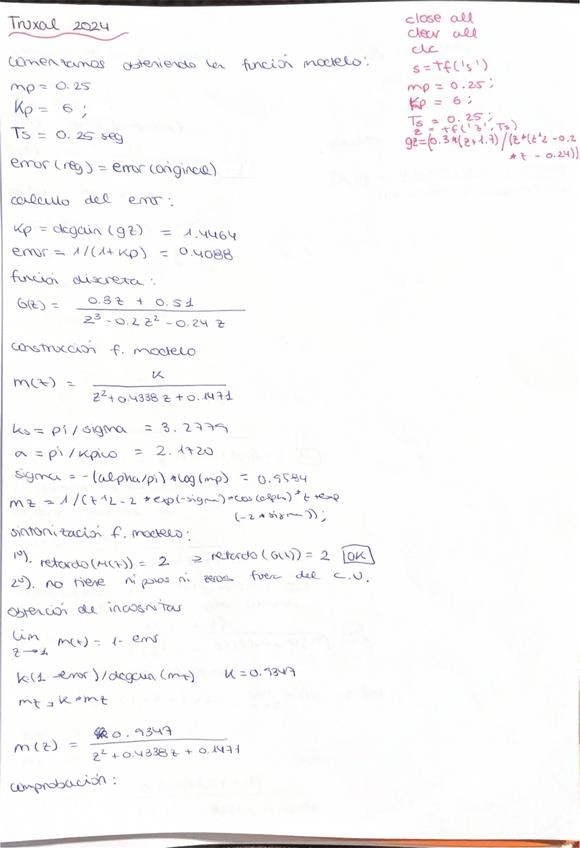 Truxal 2024
comenzamos obteniendo la función modelo:
mp = 0.25
Kp = 6 ;
Ts = 0.25 seg
error (reg) = error (original)
calculo del error :
Kp = dcgain (gz) = 1.4464
error = 1/(1+Kp) = 0.4088
función discreta :
G(z) = 0.3z + 0.51
z³ - 0.2 z² - 0.24 z
construcción f. modelo
m(z) = K
z² + 0.4338 z + 0.1471
ks = pi / sigma = 3.2779
a = pi / kpico = 2.1720
sigma = -(alpha/pi) * log (mp) = 0.9584
mz = 1 / (z^2 - 2 * exp(-sigma) * cos(alpha) * z + exp
(-2 * sigma));
sintonización f. modelo :
1º). retardo (M(z)) = 2 ≥ retardo (G(z)) = 2 OK
2º). no tiene ni polos ni zeros fuera del C.U.
obtención de incognitas
lim m(z) = 1 - error
z → 1
k(1 - error) / dcgain (mz) K = 0.9347
mz = K * mz
m(z) = 0.9347
z² + 0.4338 z + 0.1471
comprobación :
close all
clear all
clc
s = tf('s')
mp = 0.25 ;
Kp = 6 ;
Ts = 0.25 ;
z = tf('z', Ts)
gz = (0.3*(z+1.7) / (z*(z^2 - 0.2
* z - 0.24))